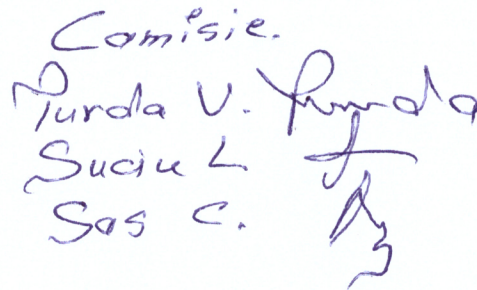 Comisie.
Turda V. Turda
Suciu L.
Sas C.